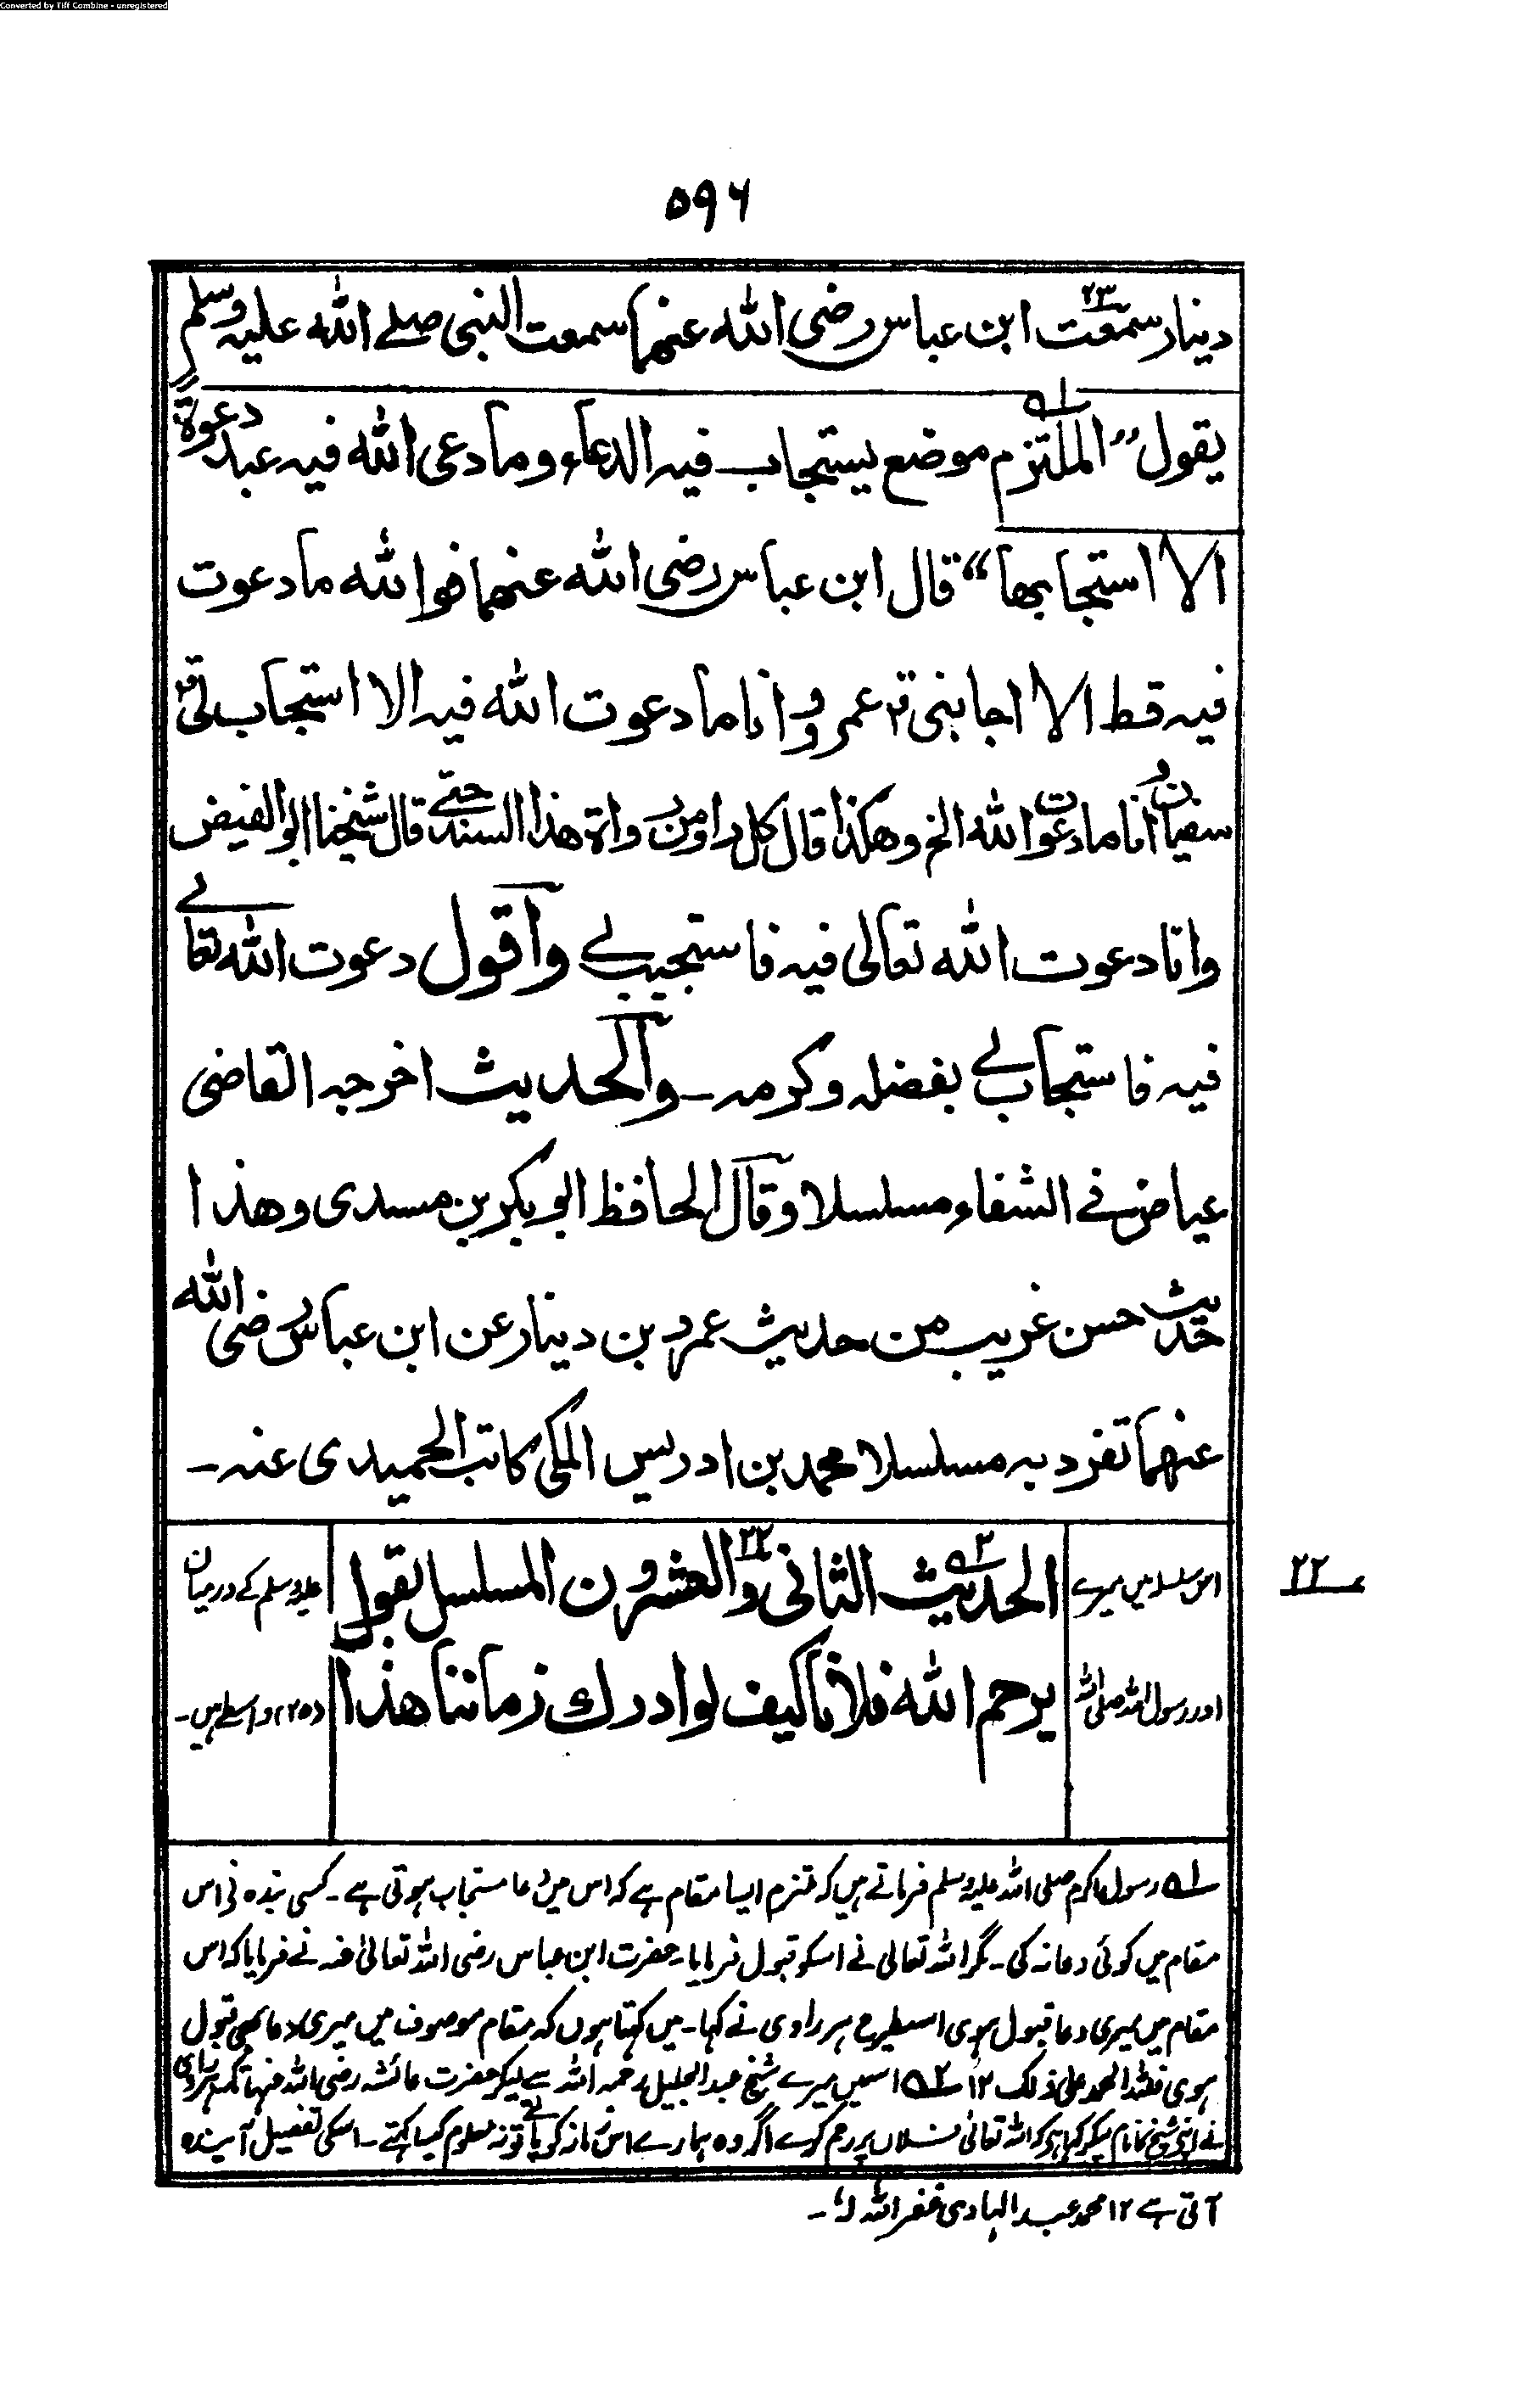 Converted by Tiff Combine - unregistered
۵۹۶
دینار سمعت ابن عباس رضی الله عنهما سمعت النبی صلے الله علیه وسلم
یقول ”الملتزم موضع یستجاب فیه الدعاء وما دعی الله فیه عبد دعوة
الا استجابها“ قال ابن عباس رضی الله عنهما فوالله ما دعوت
فیه قط الا اجابنی قال عمرو وانا ما دعوت الله فیه الا استجاب لی قال
سفیان وانا ما دعوت الله الخ وهکذا قال کل راو من رواة هذا السند حتے قال شیخنا ابو الفیض
وانا دعوت الله تعالی فیه فاستجیب لے وأقول دعوت الله تعالے
فیه فاستجاب لے بفضله وکرمه ـ والحدیث اخرجه القاضی
عیاض فے الشفاء مسلسلا وقال الحافظ ابو بکر بن مسدی وهذا
حدیث حسن غریب من حدیث عمرو بن دینار عن ابن عباس رضی الله
عنهما تفرد به مسلسلا محمد بن ادریس المکی کاتب الحمیدی عنه ـ
۲۲
اس سلسلہ میں میرے
الحدیث الثانی والعشرون المسلسل بقول
علیہ وسلم کے درمیان
اور رسول اللہ صلی اللہ
یرحم الله فلانا کیف لو ادرک زماننا هذا
(۲۵) واسطے ہیں ـ
لـه رسول اکرم صلی اللہ علیہ وسلم فرماتے ہیں کہ ملتزم ایسا مقام ہے کہ اس میں دعا مستجاب ہوتی ہے ۔ کسی بندہ نے اس
مقام میں کوئی دعا نہ کی ۔ مگر اللہ تعالی نے اسکو قبول فرمایا ۔ حضرت ابن عباس رضی اللہ تعالیٰ عنہ نے فرمایا کہ اس
مقام میں میری دعا قبول ہوی اسیطرح ہر راوی نے کہا ۔ میں کہتا ہوں کہ مقام موصوف میں میری دعا بھی قبول
ہوی فللہ الحمد علی ذلک ۱۲ ۲ـه اسمیں میرے شیخ عبد الجلیل رحمہ اللہ سے لیکر حضرت عائشہ رضی اللہ عنہا تک ہر راوی
نے اپنے شیخ کا نام لیکر کہا ہے کہ اللہ تعالیٰ فلاں پر رحم کرے اگر وہ ہمارے اس زمانہ کو پاتے تو نہ معلوم کیا کہتے ۔ اسکی تفصیل آیندہ
آتی ہے ۱۲ محمد عبد الہادی غفر اللہ لہٗ ـ